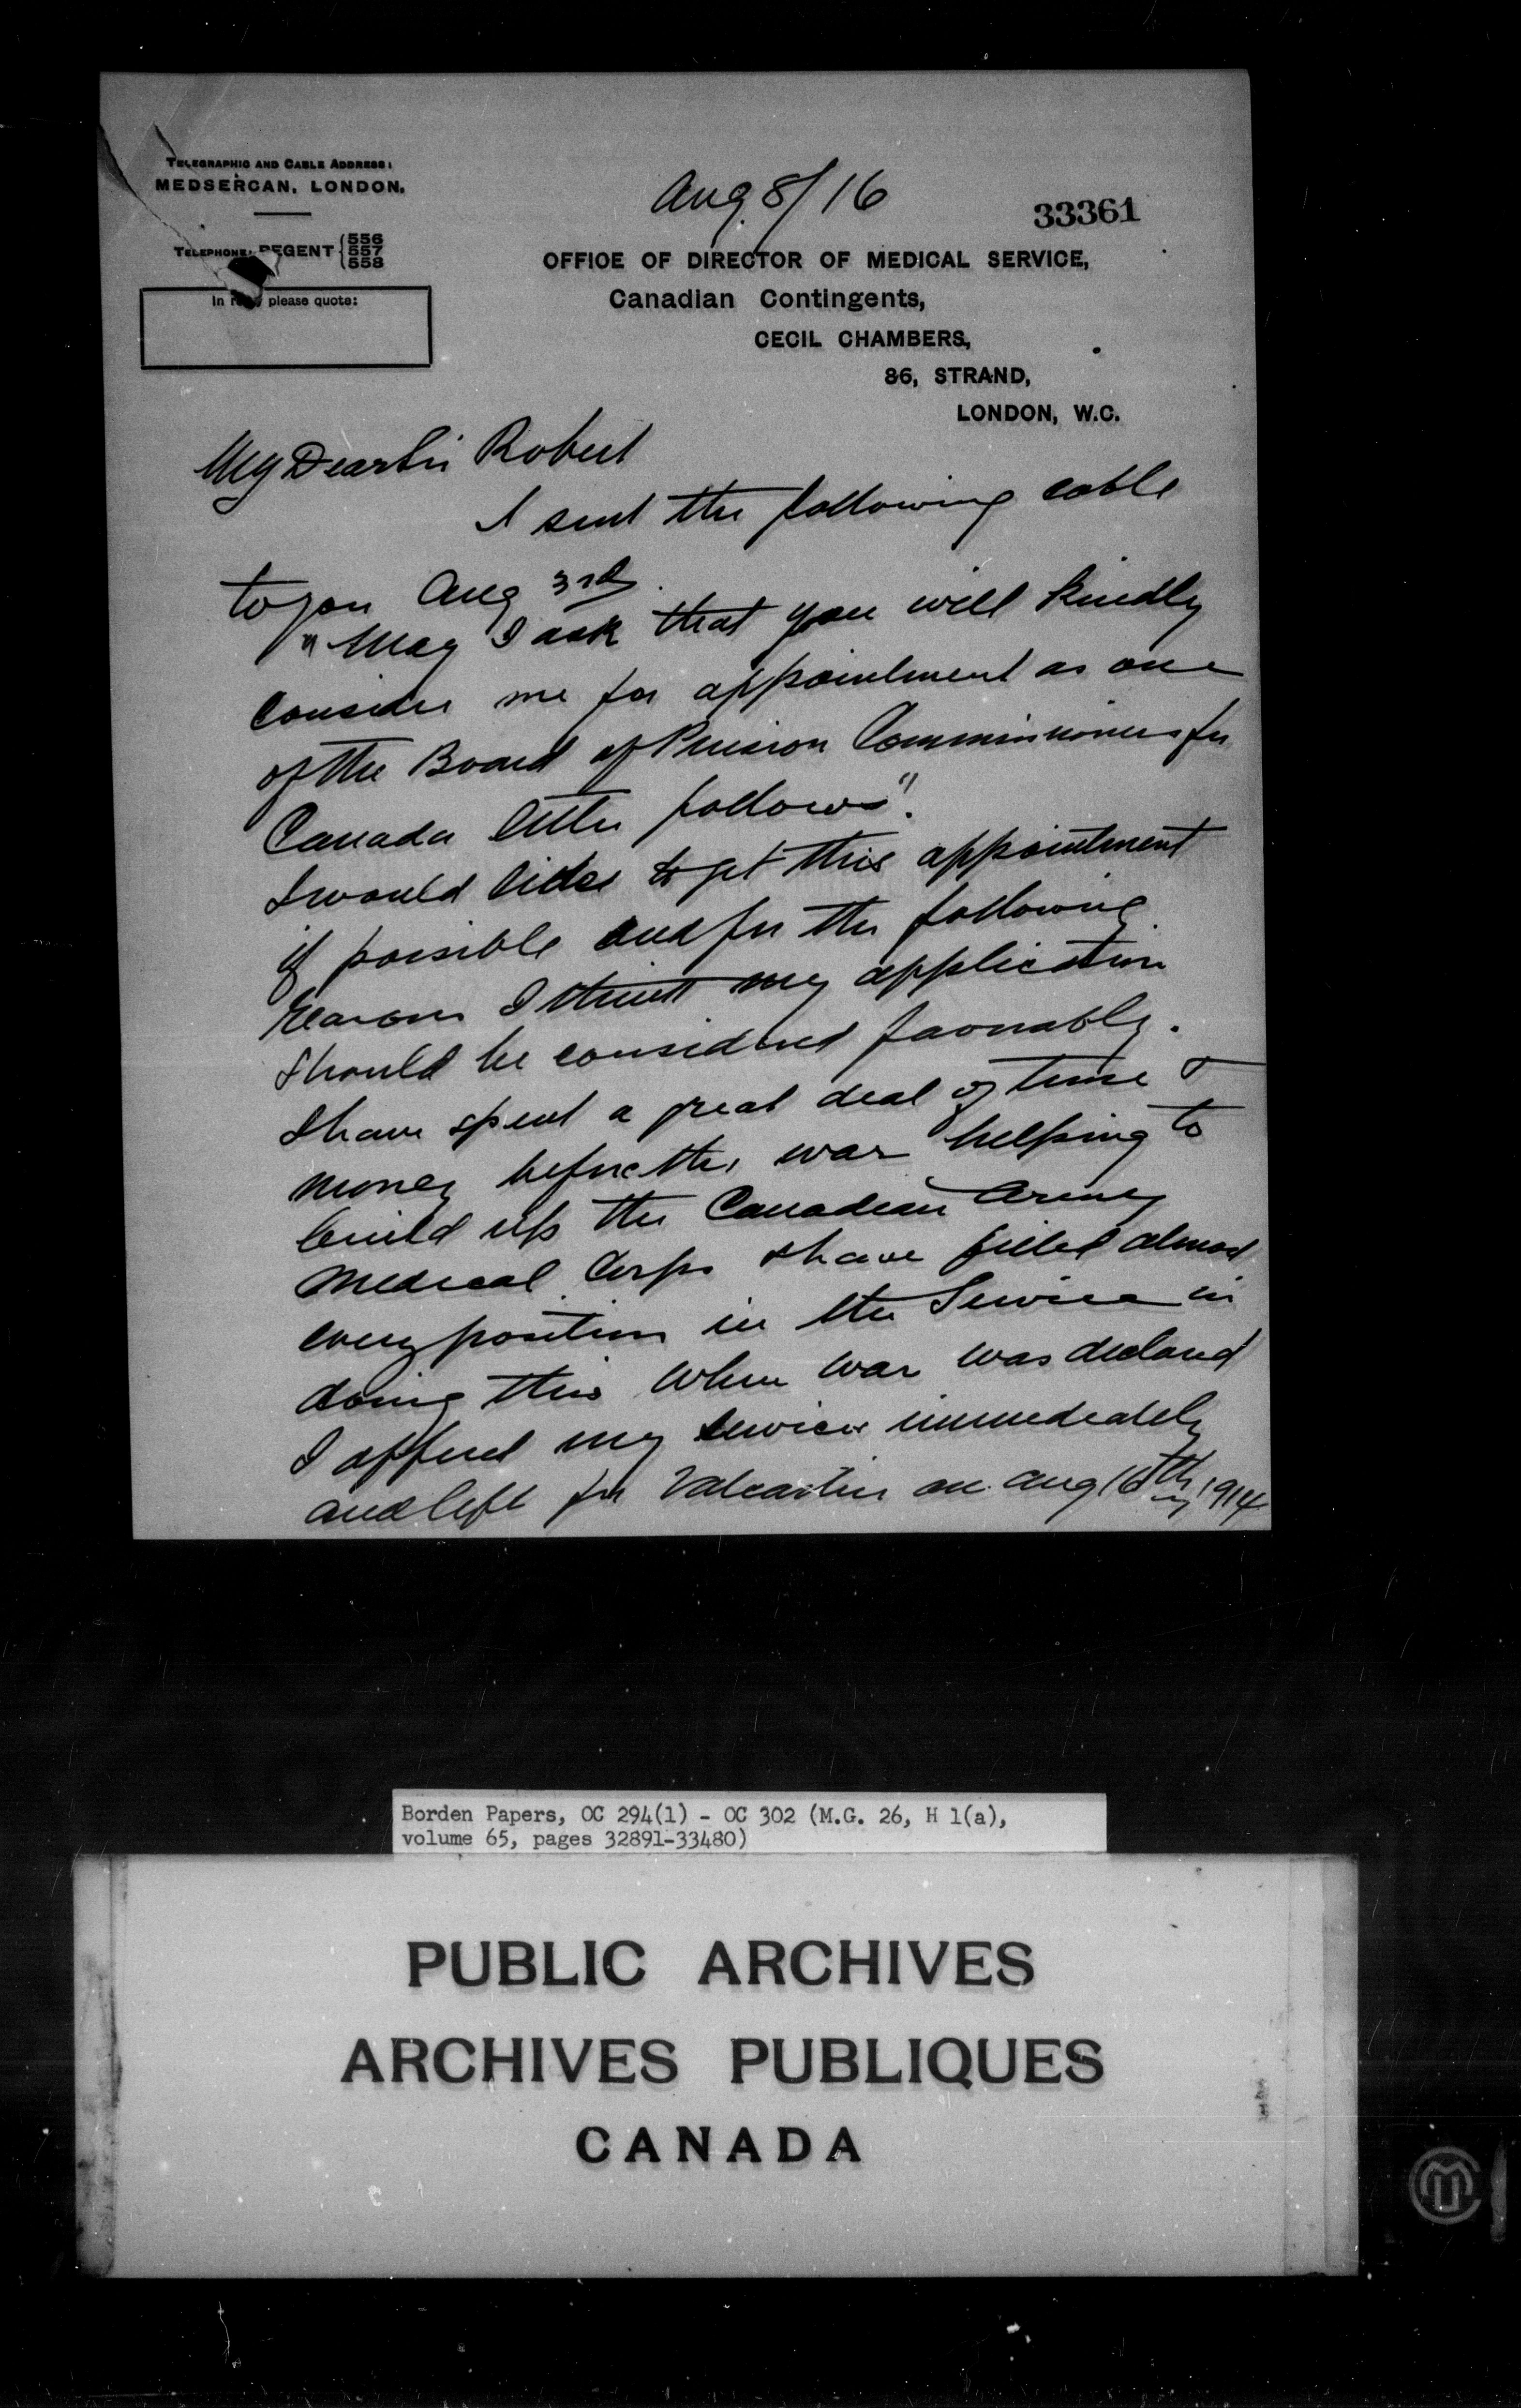 TELEGRAPHIC AND CABLE ADDRESS:
MEDSERCAN, LONDON.
TELEPHONE: REGENT {556
557
558
In reply please quote:
Aug. 8/16
33361
OFFICE OF DIRECTOR OF MEDICAL SERVICE,
Canadian Contingents,
CECIL CHAMBERS,
86, STRAND,
LONDON, W.C.
My Dear Sir Robert
I sent the following cable
to you Aug 3rd.
"May I ask that you will kindly
consider me for appointment as one
of the Board of Pension Commissioners for
Canada letter follows".
I would like to get this appointment
if possible and for the following
reasons I think my application
should be considered favorably.
I have spent a great deal of time &
money before the war helping to
build up the Canadian Army
Medical Corps & have filled almost
every position in the Service in
doing this when war was declared
I offered my services immediately
and left for Valcartier on Aug 16th 1914
Borden Papers, OC 294(1) - OC 302 (M.G. 26, H 1(a),
volume 65, pages 32891-33480)
PUBLIC ARCHIVES
ARCHIVES PUBLIQUES
CANADA